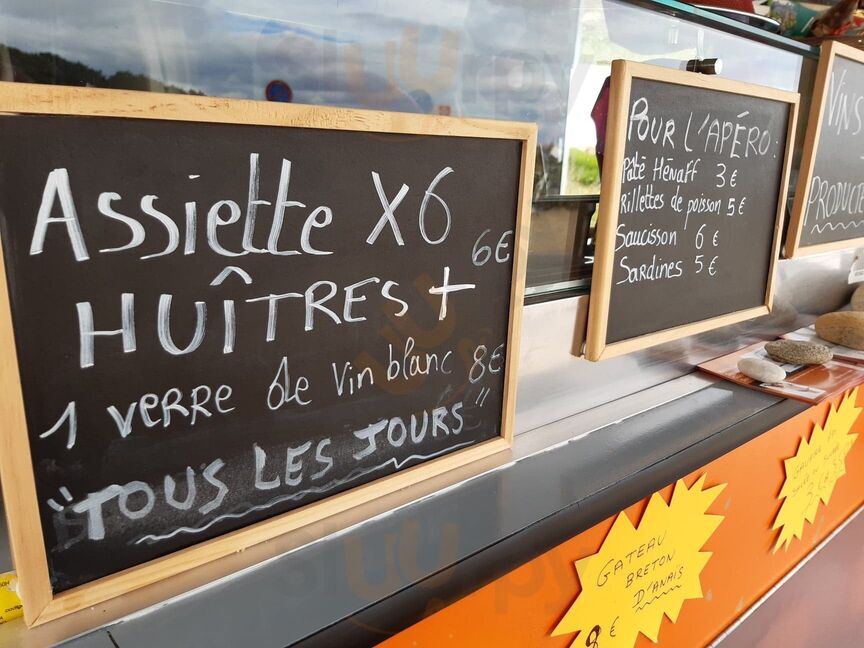 Assiette X6
6€
HUÎTRES +
1 VERRE de vin blanc 8€
"TOUS LES JOURS"
POUR L'APÉRO:
Pâté Hénaff 3€
Rillettes de poisson 5€
Saucisson 6€
Sardines 5€
VINS
PRODUC
GATEAU
BRETON
D'ANAÏS
8 €